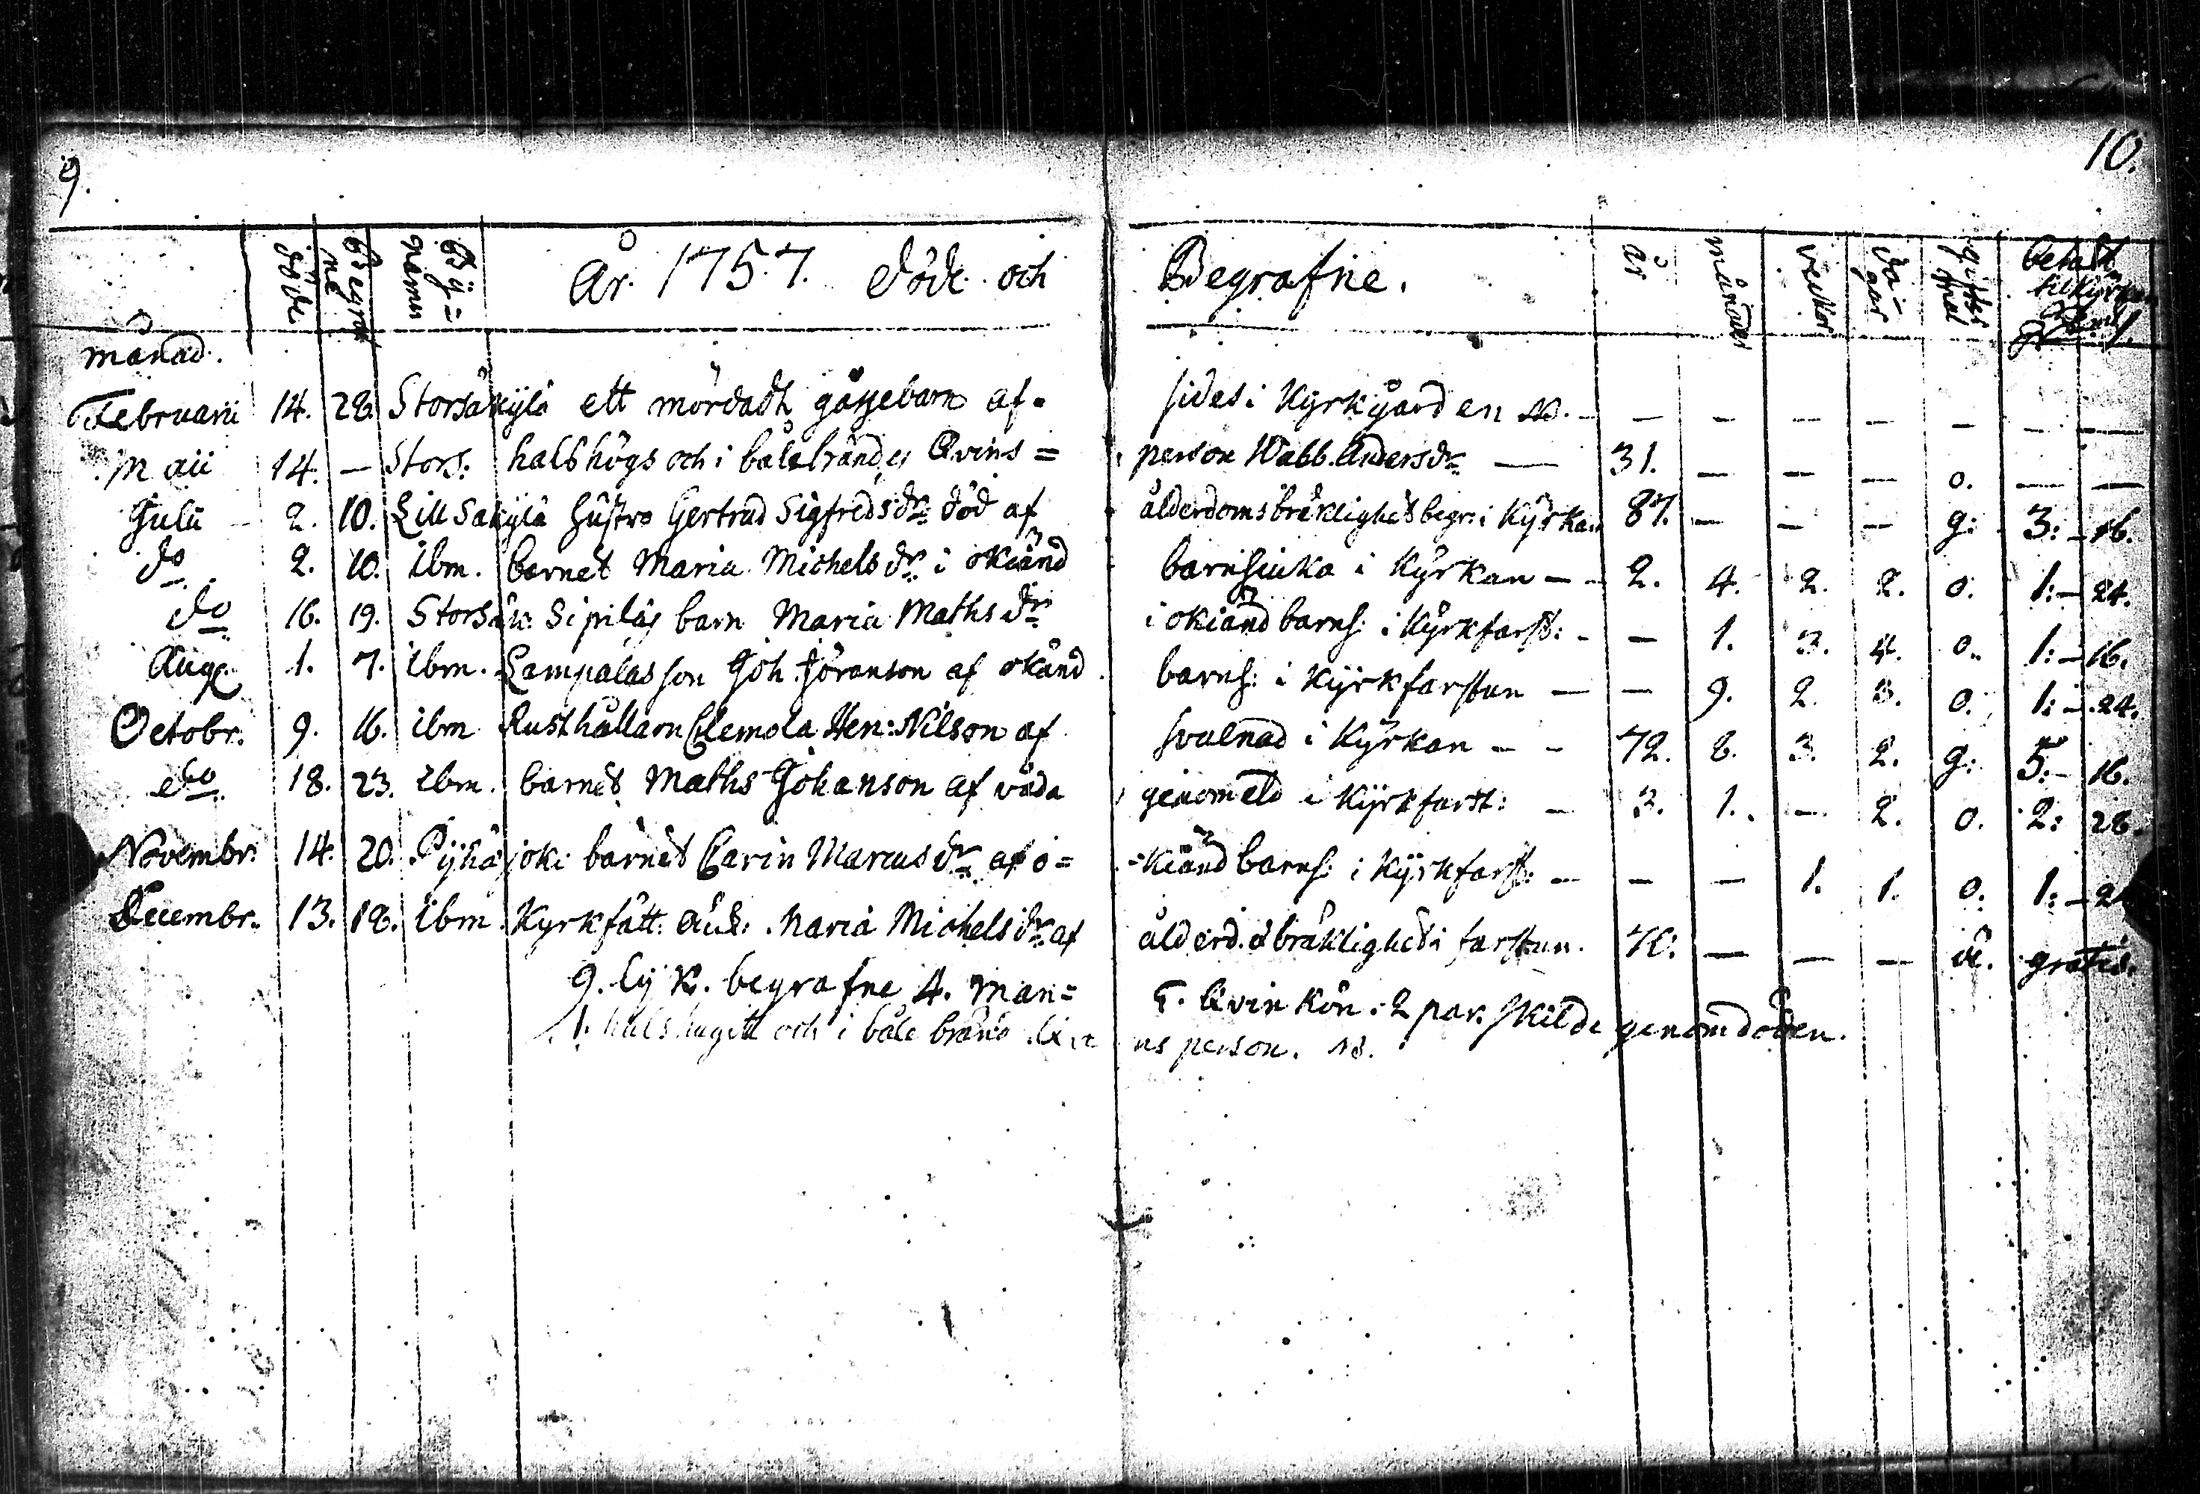 9.
10.
månad.
döde.
Begrafne
Bÿ=namn
År. 1757. döde och Begrafne.
år
månader
veckor
dagar
gifte
betalt til kyrkan
Februarii 14. 28. Storsäkÿlä ett mördadt gåssebarn af- sides i Kyrkgården NB. - - - - - - -
Maii 14. - Stors. halshögs och i båle brändes Qvins= person Walb. Andersdr 31. - - - o. - -
Julii 2. 10. Lill Säkÿlä hustro Gertrud Sigfredsdr död af ålderdomsbräklighet begr: i Kyrkan 87. - - - g: 3: - 16.
do 2. 10. ibm. barnet Maria Michelsdr i okiänd barnsiuka i Kyrkan - 2. 4. 2. 2. o. 1: - 24.
do 16. 19. Storsäk: Sipiläs barn Maria Mathsdr i okiänd barns: i Kyrkfarst: - - 1. 3. 4. o. 1: - 16.
Aug. 1. 7. ibm. Lampalas son Joh. Jöranson af okänd barns: i Kyrkfarstun - - 9. 2. 3. o. 1: - 24.
Octobr. 9. 16. ibm Rusthållarn Clemola Hen: Nilson af svulnad i Kyrkan - - 72. 8. 3. 2. g: 5: - 16.
do 18. 23. ibm. barnet Maths Johanson af våda genom eld i Kyrkfarst: - 3. 1. - 2. o. 2: 28.
Novembr. 14. 20. Pyhäjoki barnet Carin Marcusdr af o= =kiänd barns: i Kyrkfarst: - - - 1. 1. o. 1: - 24
Decembr. 13. 18. ibm Kyrkfatt: Änk: Maria Michelsdr af ålderd. bräklighet i farstun. 70. - - - ä. gratis.
9. lijk. begrafne 4. man= 5. qvinkön: 2 par. skilde genom döden.
1. halshugitt och i båle bränd qvins person. NB.